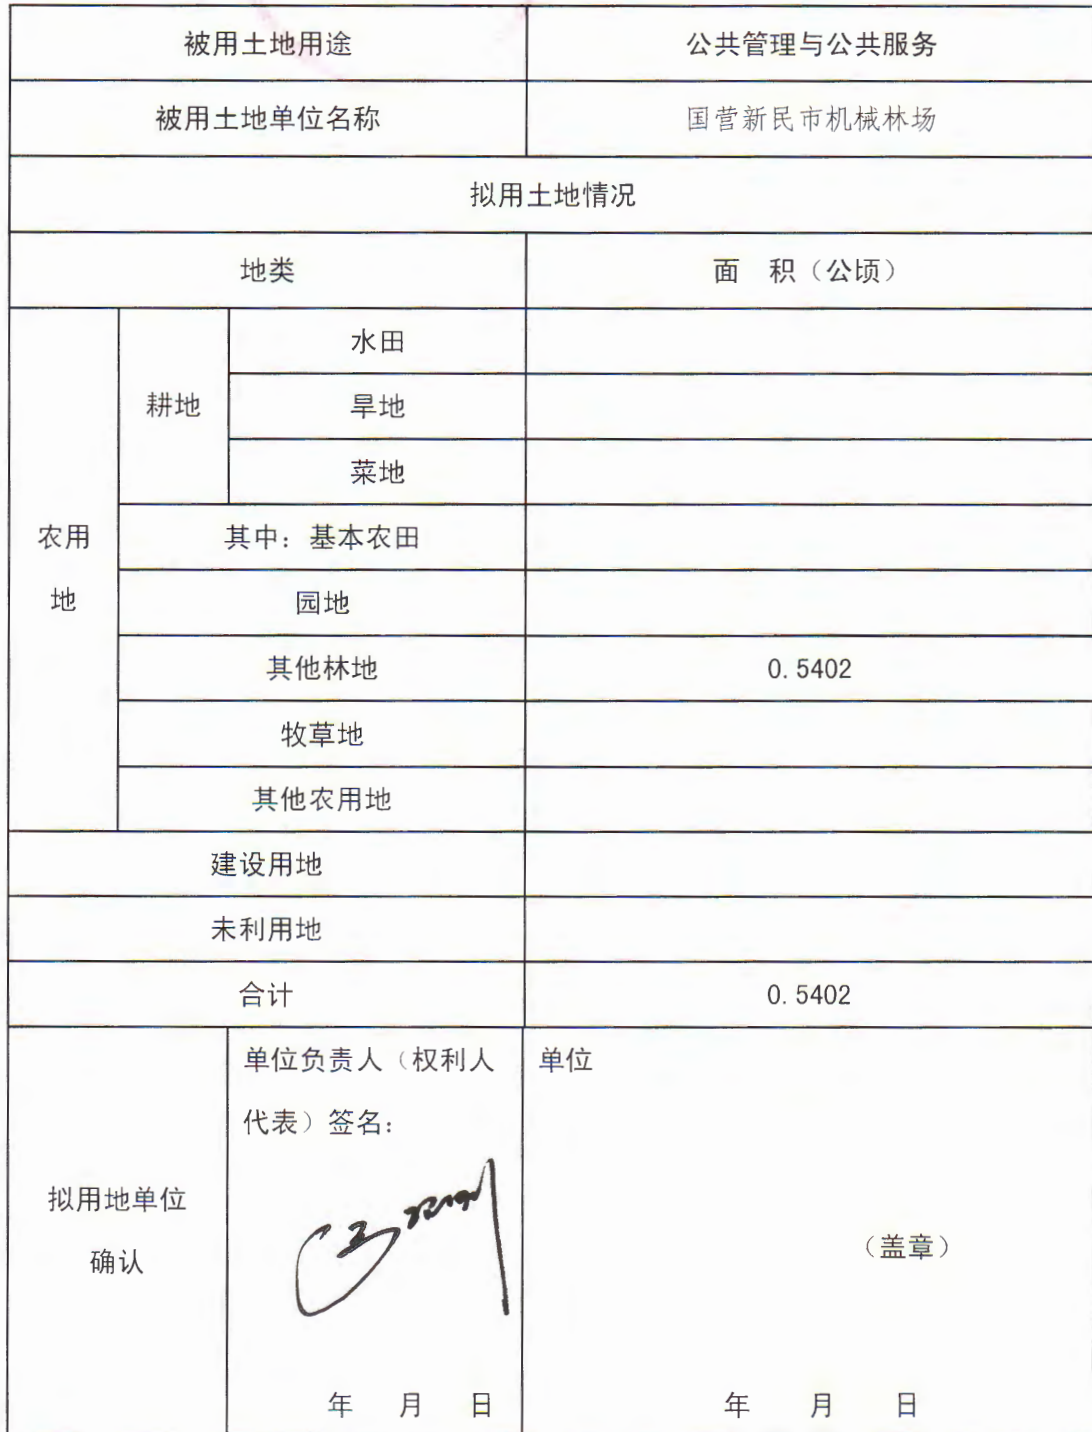 被用土地用途 公共管理与公共服务
被用土地单位名称 国营新民市机械林场
拟用土地情况
地类 面 积（公顷）
农用
地
耕地
水田
旱地
菜地
其中：基本农田
园地
其他林地 0.5402
牧草地
其他农用地
建设用地
未利用地
合计 0.5402
拟用地单位
确认
单位负责人（权利人
代表）签名：
年 月 日
单位
（盖章）
年 月 日